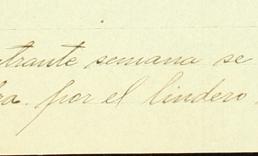 trante semana se
ra. por el lindero